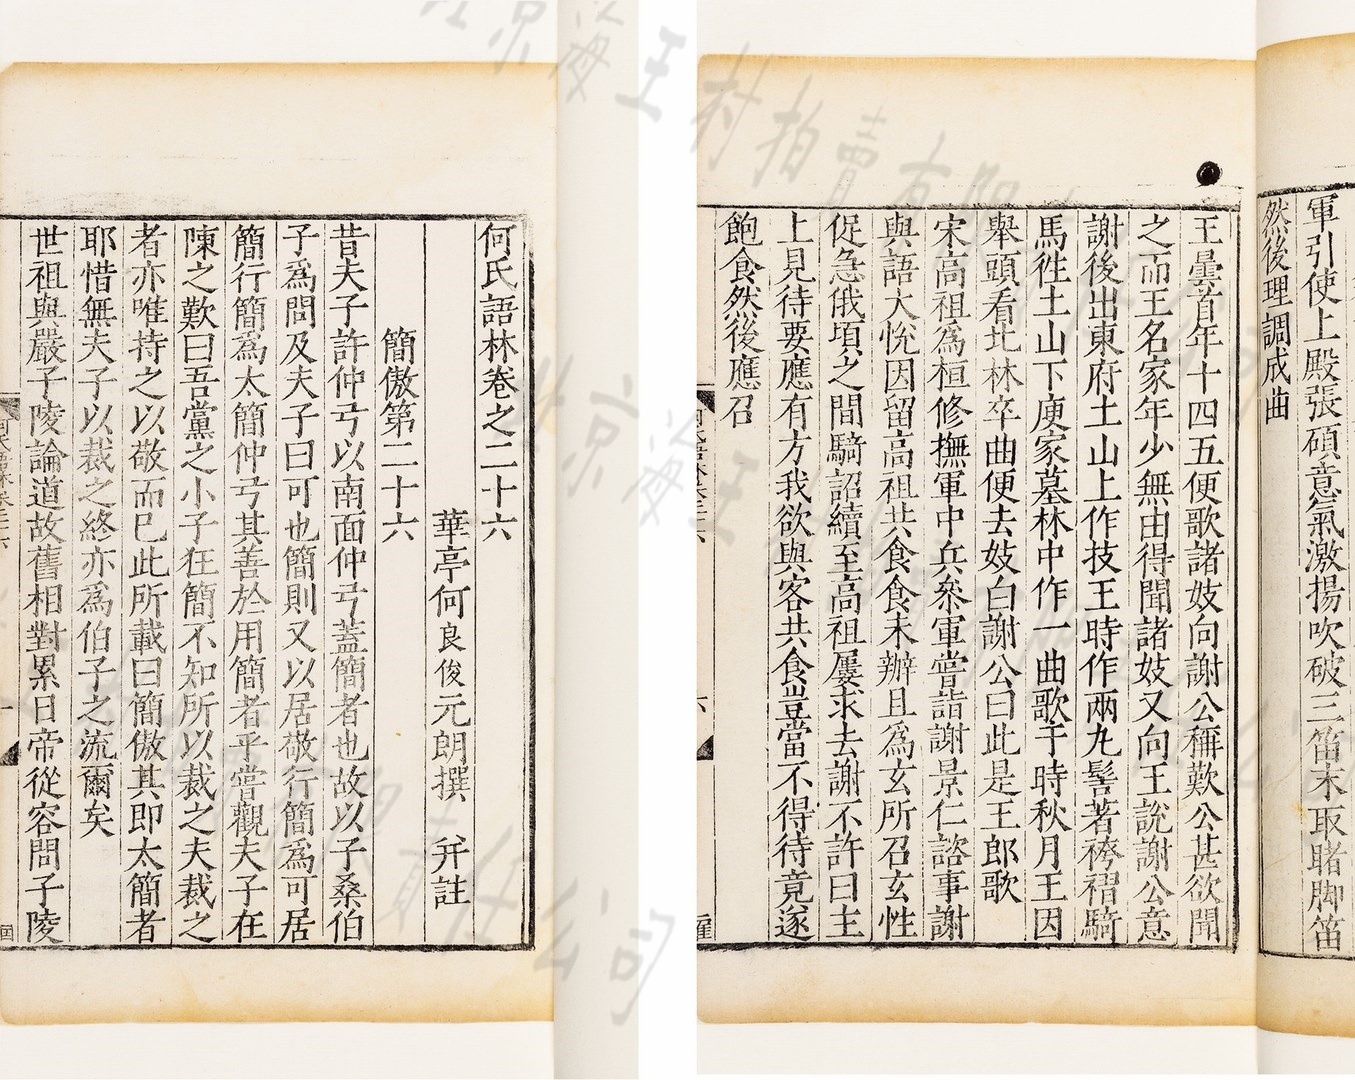 何氏語林卷之二十六
華亭何良俊元朗撰 幷註
簡傲第二十六
昔夫子許仲弓以南面仲弓蓋簡者也故以子桑伯
子爲問及夫子曰可也簡則又以居敬行簡爲可居
簡行簡爲太簡仲弓其善於用簡者乎嘗觀夫子在
陳之歎曰吾黨之小子狂簡不知所以裁之夫裁之
者亦唯持之以敬而已此所載曰簡傲其即太簡者
耶惜無夫子以裁之終亦爲伯子之流爾矣
世祖與嚴子陵論道故舊相對累日帝從容問子陵
一
軍引使上殿張碩意氣激揚吹破三笛末取睹脚笛
然後理調成曲
王曇首年十四五便歌諸妓向謝公稱歎公甚欲聞
之而王名家年少無由得聞諸妓又向王說謝公意
謝後出東府土山上作技王時作兩丸髻著袴褶騎
馬徃土山下庾家墓林中作一曲歌于時秋月王因
舉頭看北林卒曲便去妓白謝公曰此是王郎歌
宋高祖爲桓修撫軍中兵參軍嘗詣謝景仁諮事謝
與語大恱因留高祖共食食未辦且爲玄所召玄性
促急俄頃之間騎詔續至高祖屢求去謝不許曰主
上見待要應有方我欲與客共食豈當不得待竟遂
飽食然後應召
何氏語林卷二十六
六
北京海王村拍賣有限責任公司